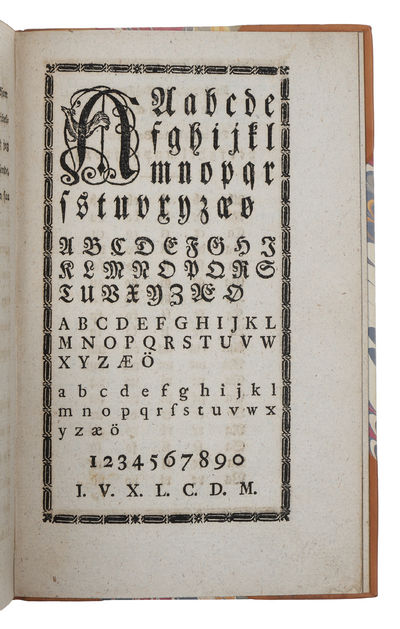 A Aabcde
fghijkl
mnopqr
ſstuvxyzæø
A B C D E F G H I
K L M N O P Q R S
T U V X Y Z Æ Ø
A B C D E F G H I J K L
M N O P Q R S T U V W
X Y Z Æ Ö
a b c d e f g h i j k l
m n o p q r ſ s t u v w x
y z æ ö
1234567890
I. V. X. L. C. D. M.